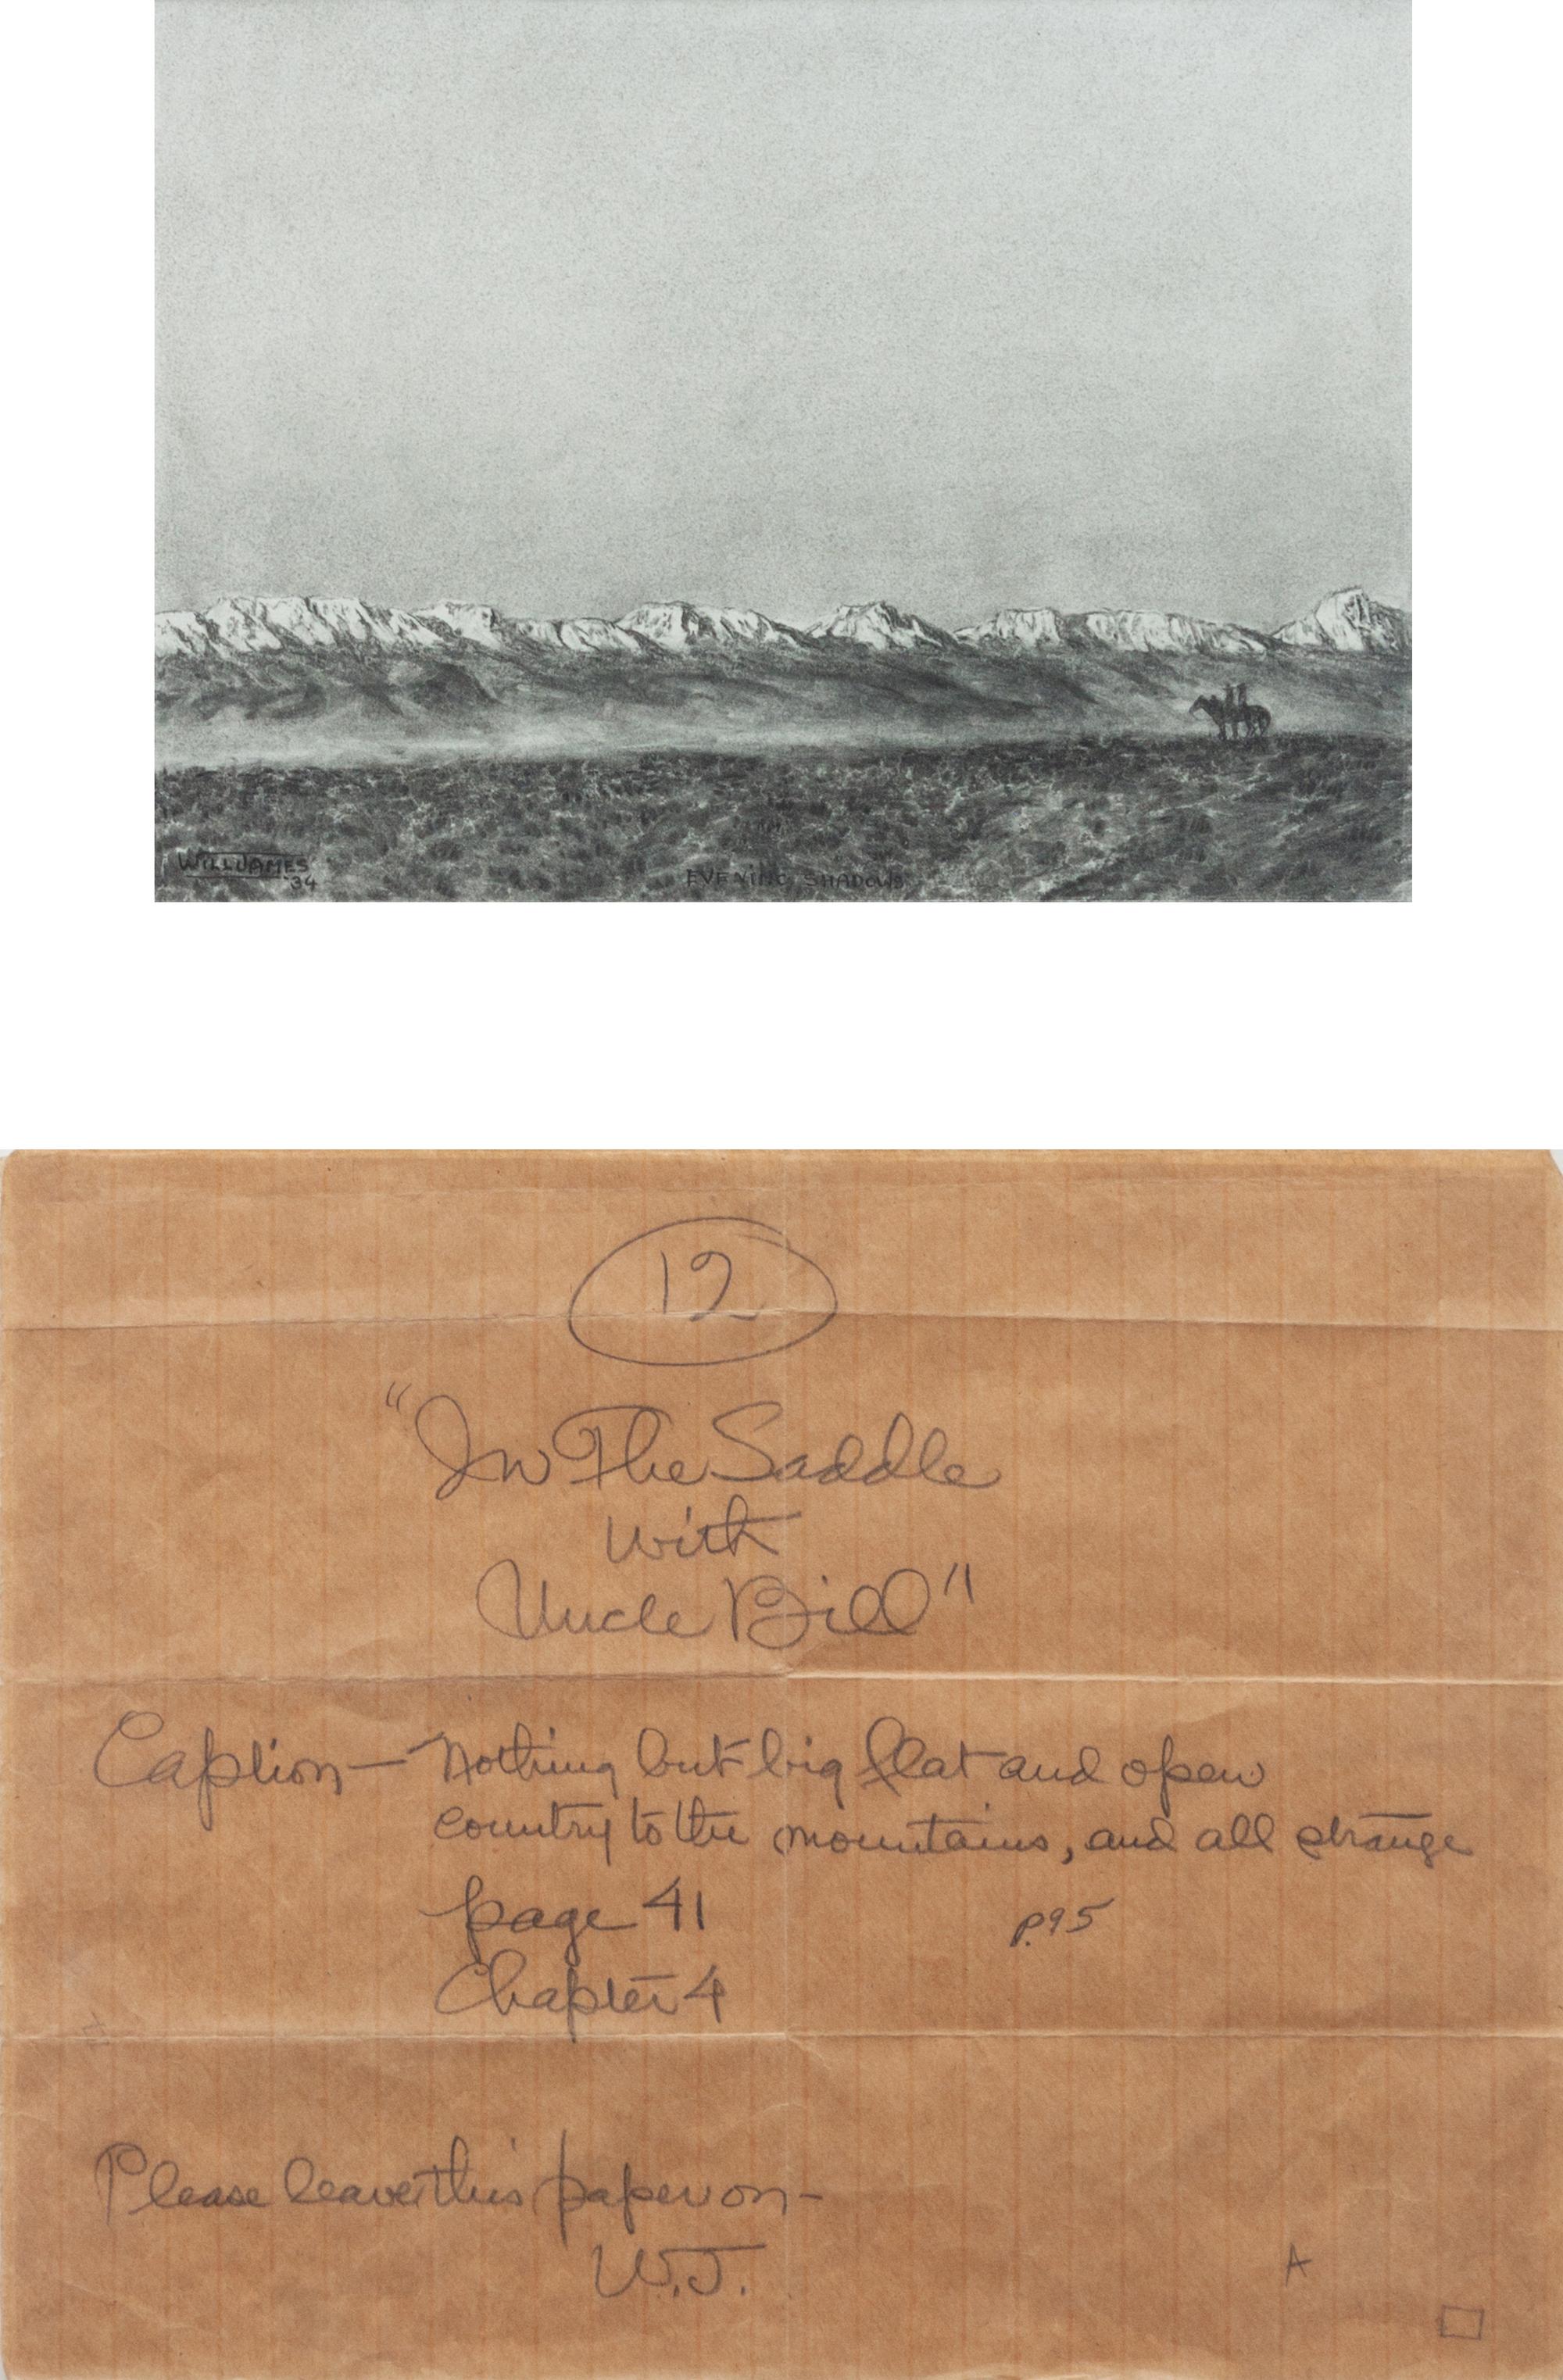 WILL JAMES
'34
EVENING SHADOWS
12
"In The Saddle
with
Uncle Bill"
Caption — Nothing but big flat and open
country to the mountains, and all strange
page 41
p.95
Chapter 4
Please leave this paper on —
W.J.
A